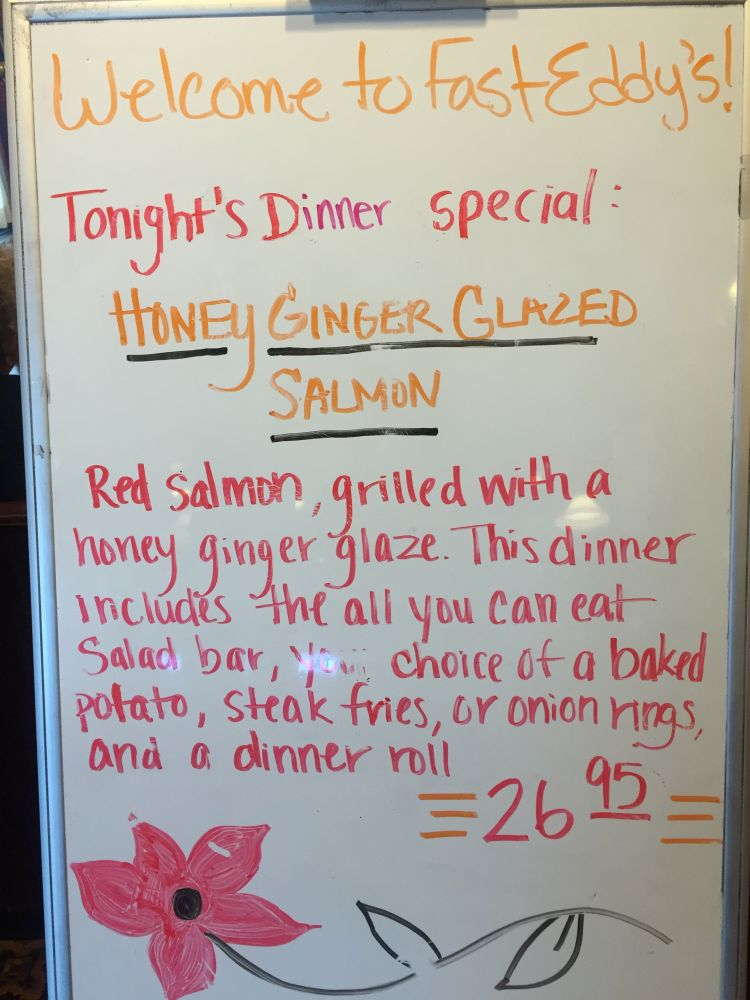 Welcome to Fast Eddy's!
Tonight's Dinner special:
HONEY GINGER GLAZED
SALMON
Red salmon, grilled with a
honey ginger glaze. This dinner
includes the all you can eat
Salad bar, your choice of a baked
potato, steak fries, or onion rings,
and a dinner roll
26 95